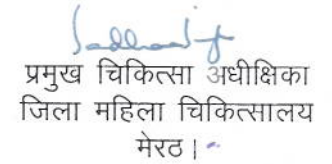 प्रमुख चिकित्सा अधीक्षिका
जिला महिला चिकित्सालय
मेरठ।